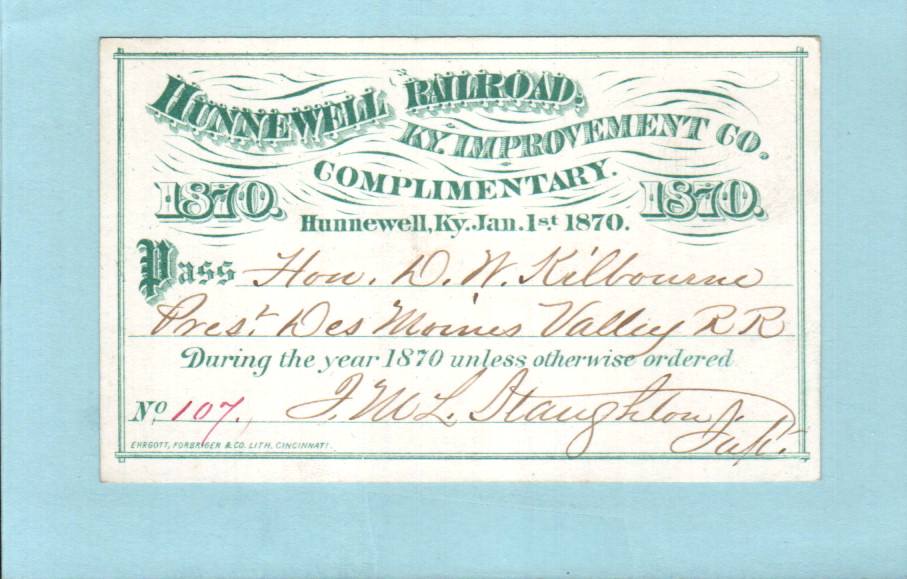 HUNNEWELL RAILROAD,
KY. IMPROVEMENT CO.
COMPLIMENTARY.
1870. 1870.
Hunnewell, Ky. Jan. 1st 1870.
Pass Hon. D. W. Kilbourne
Prest. Des Moines Valley R R
During the year 1870 unless otherwise ordered
No 107. J. M L. Staughton
Supt.
EHRGOTT, FORBRIGER & CO. LITH. CINCINNATI.